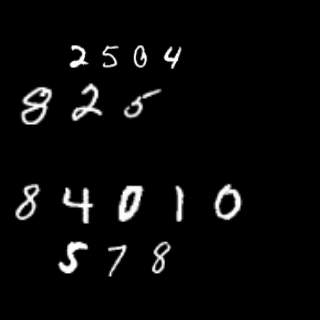 2504
825
84010
578